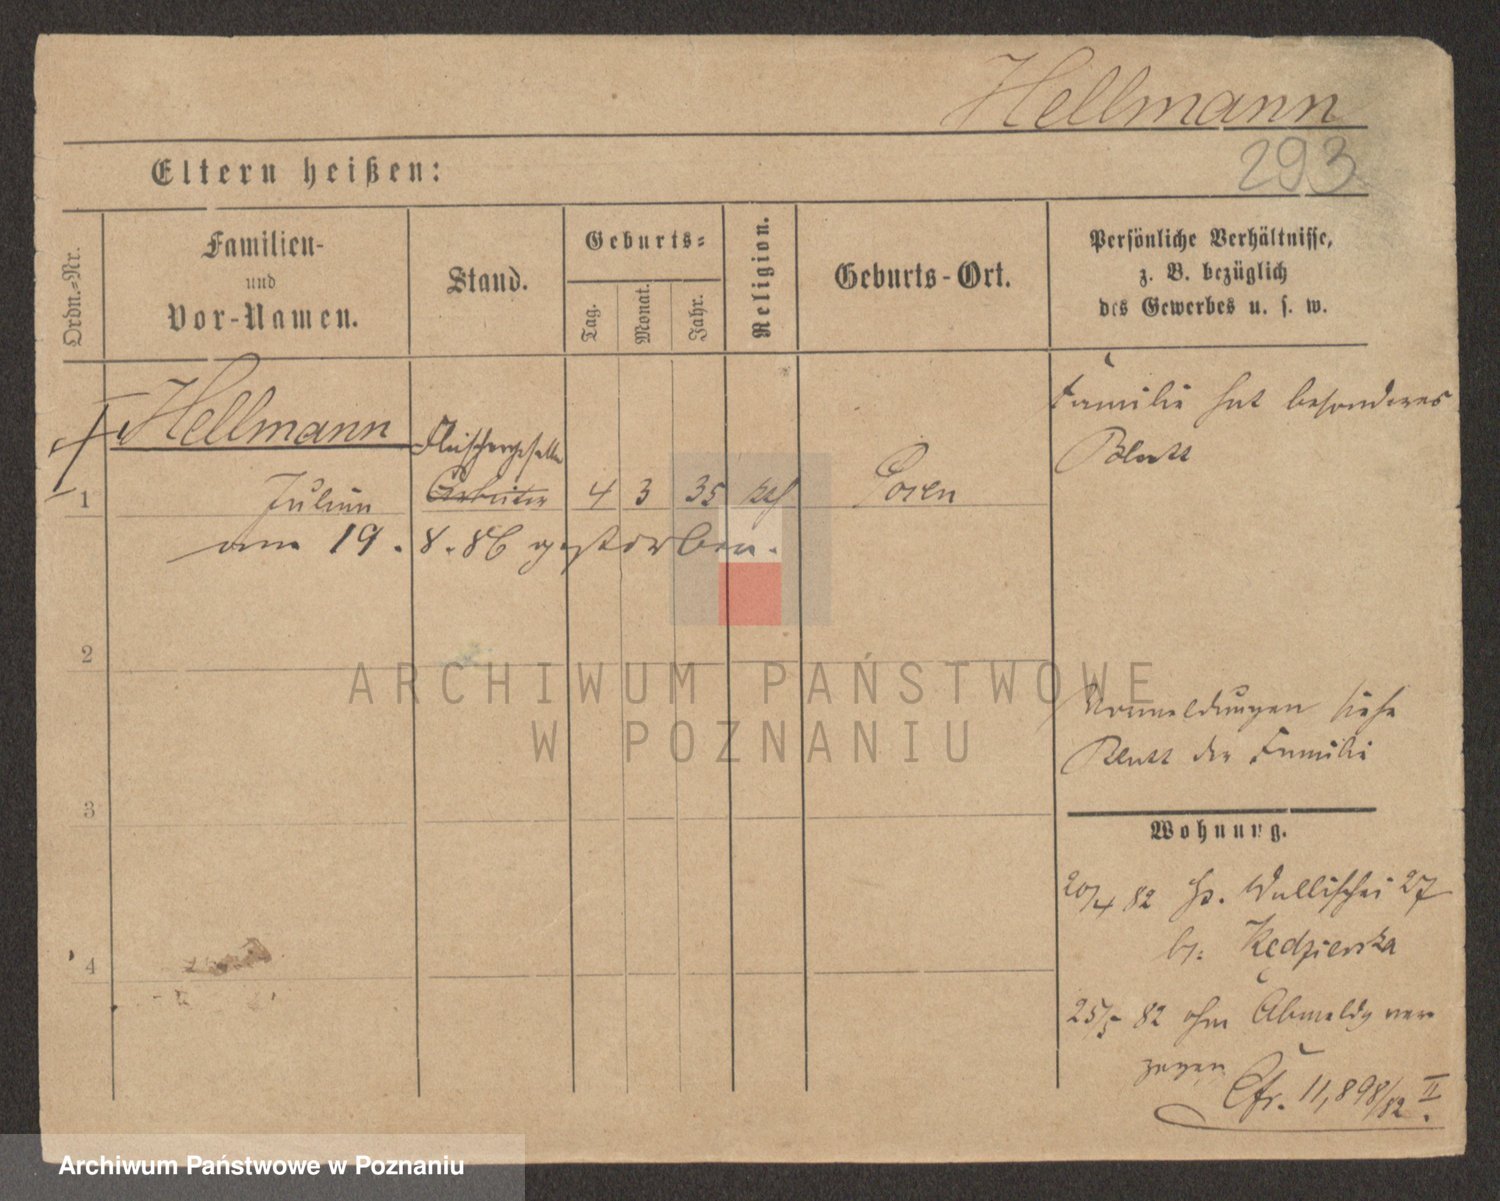 Hellmann
293
Eltern heißen:
Ordn.-Nr.
Familien-
und
Vor-Namen.
Stand.
Geburts-
Tag.
Monat.
Jahr.
Religion.
Geburts-Ort.
Persönliche Verhältnisse,
z. B. bezüglich
des Gewerbes u. s. w.
Hellmann
Fleischergeselle
Familie hat besonderes
Blatt
1 Arbeiter 4 3 35 kath Posen
am 19. 8. 86 gestorben.
2
ARCHIWUM PAŃSTWOWE
W POZNANIU
Anmeldungen siehe
Blatt der Familie
3
Wohnung.
20/4 82 Wallischei 27
4
Kędzierska
25/5 82 ohne Abmeldg ver
zogen
Cfr. 11,898/82 II.
Archiwum Państwowe w Poznaniu